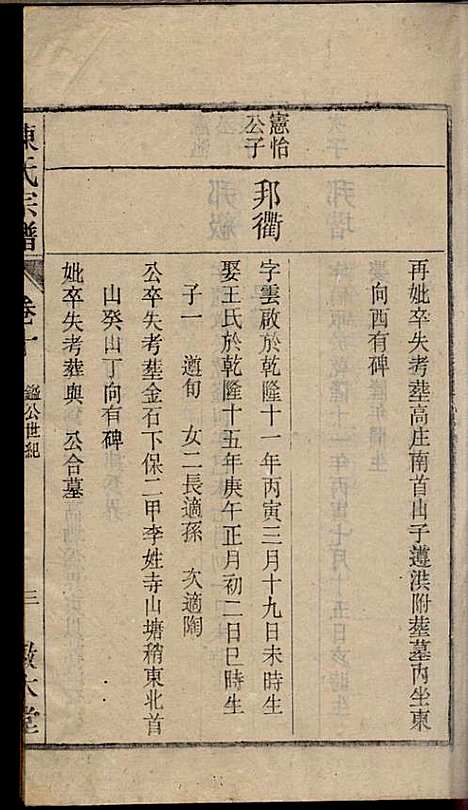 再妣卒失考葬高庄南首山子遵洪附葬墓内坐東
向西有碑
憲怡
公子
邦衢
字雲啟於乾隆十一年丙寅三月十九日未時生
娶王氏於乾隆十五年庚午正月初二日巳時生
子一 遵旬 女二長適孫 次適陶
公卒失考葬金石下保二甲李姓寺山塘稍東北首
山癸山丁向有碑
妣卒失考葬與 公合墓
陳氏宗譜
卷十
鑑公世紀
三
敦本堂